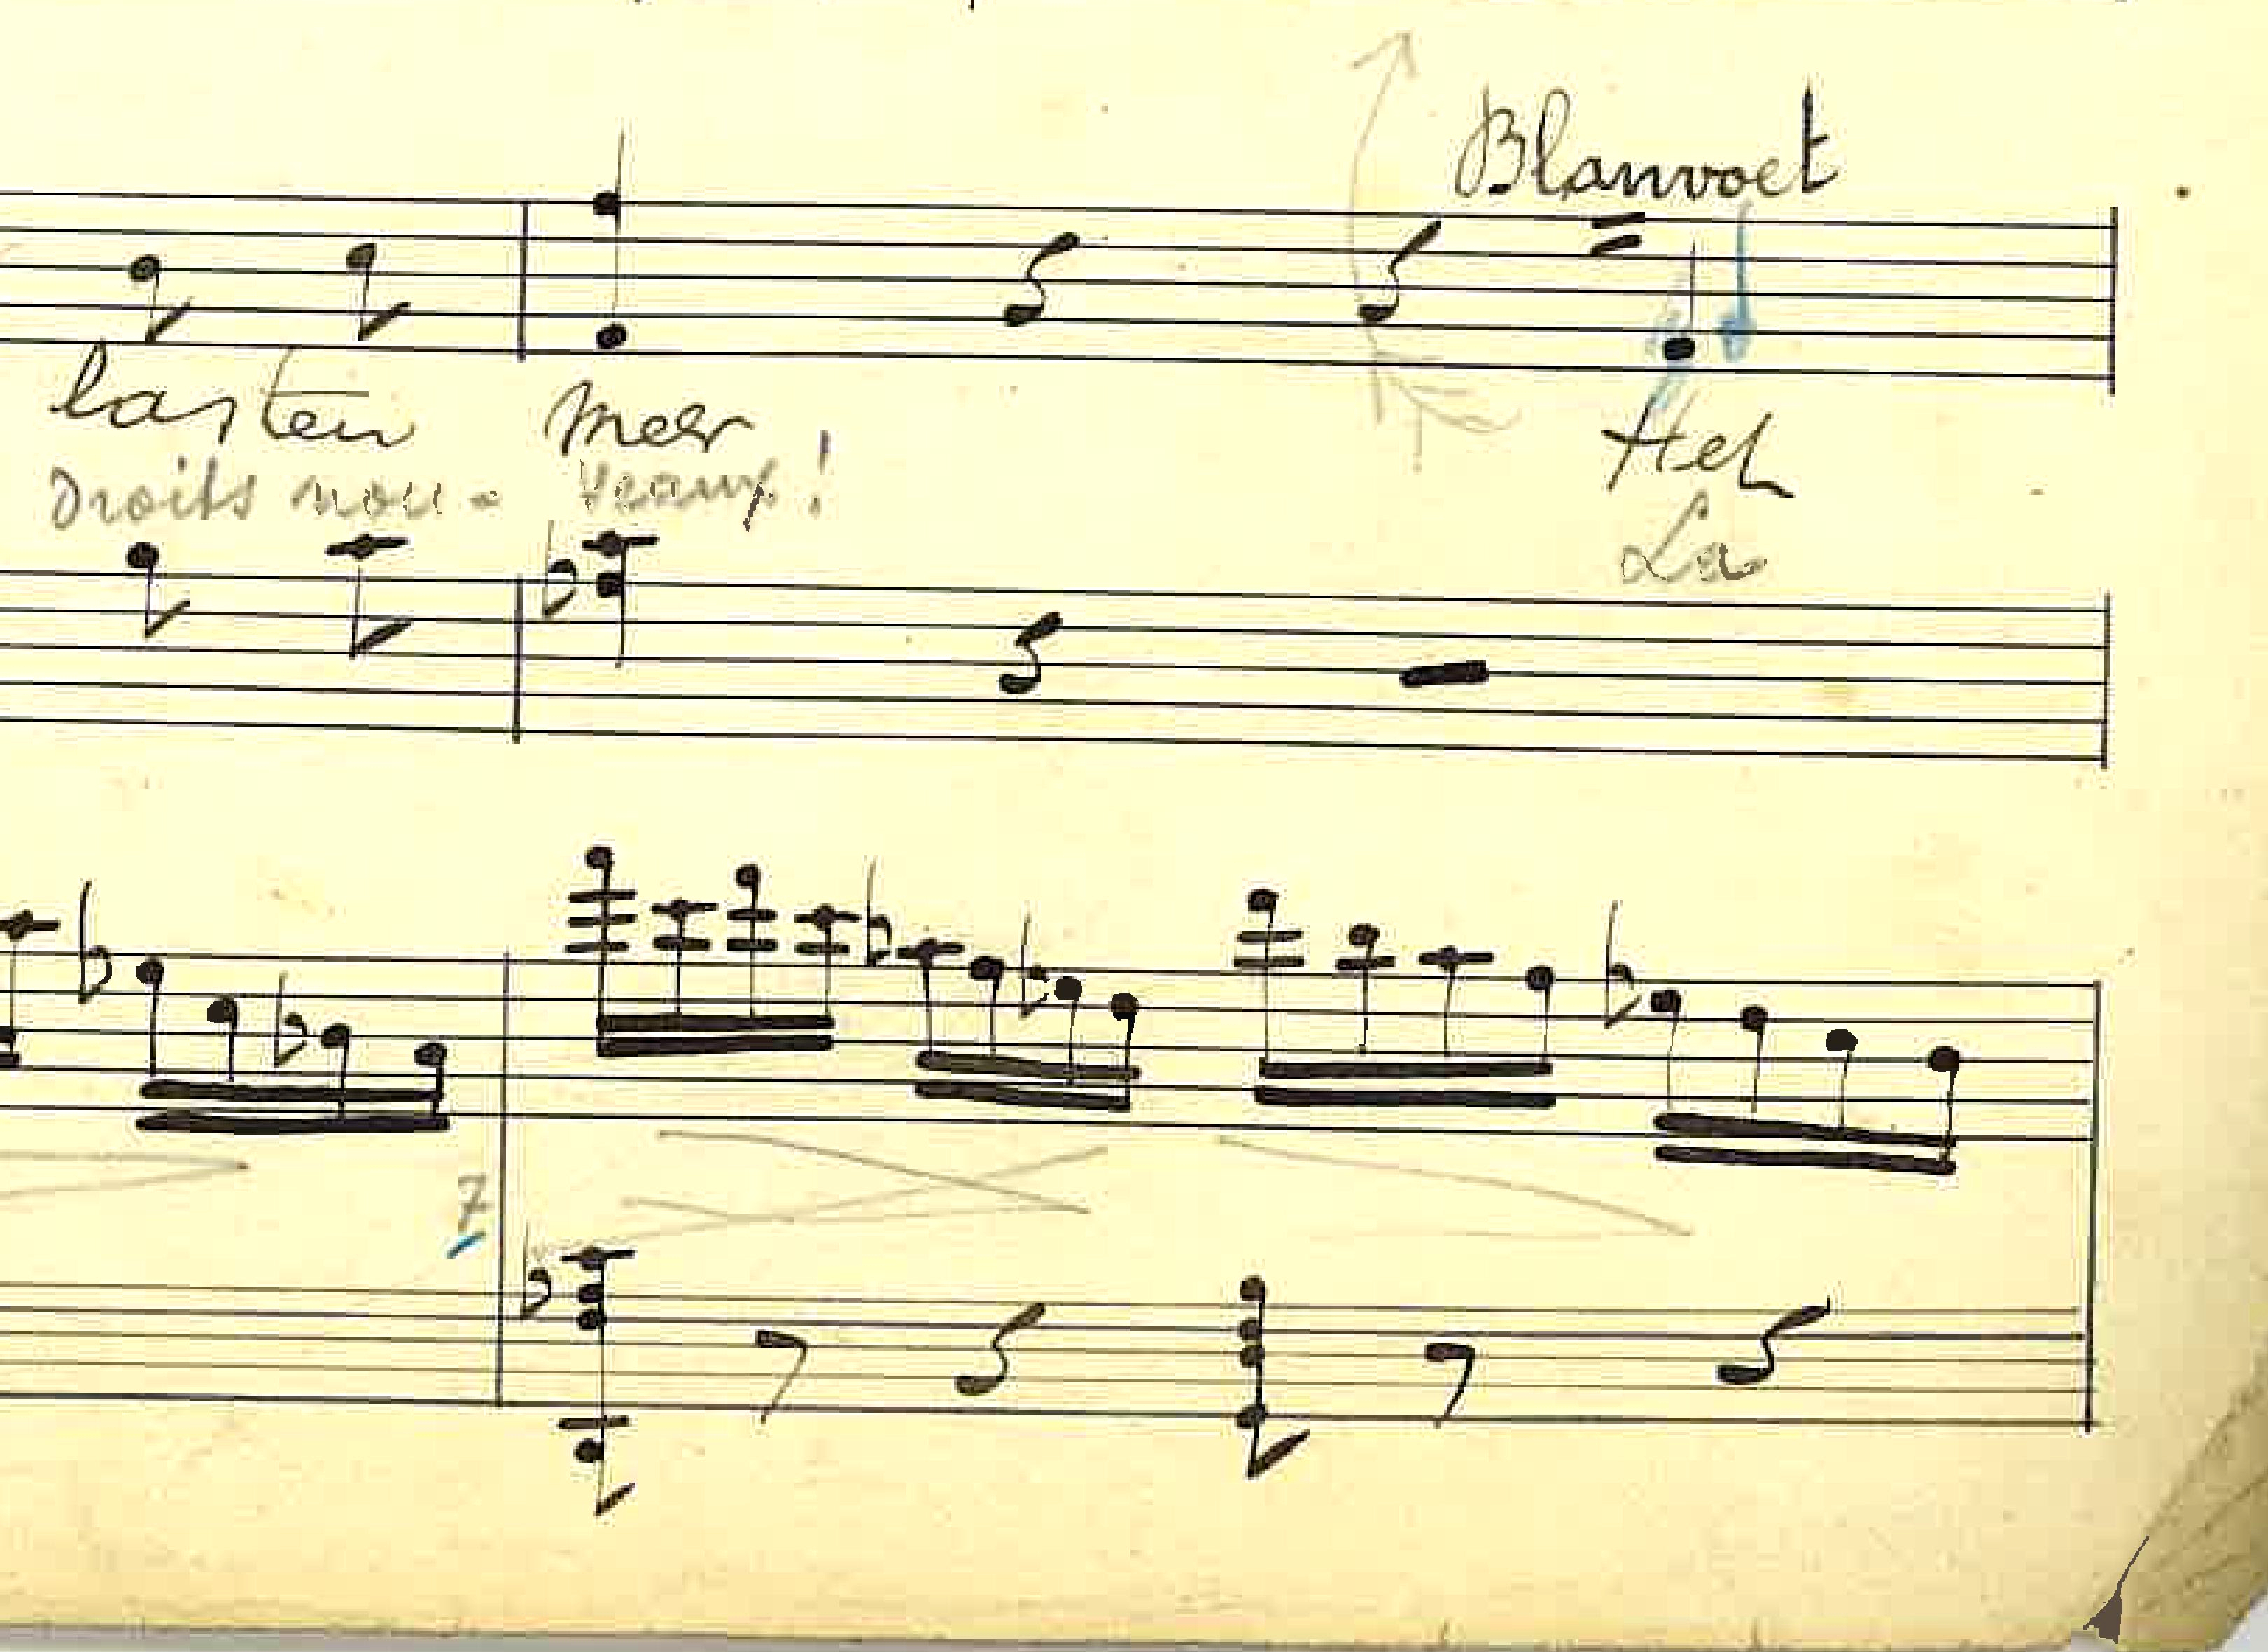 Blanvoet
lasten meer
Droits nou - veaux!
Het
La
7